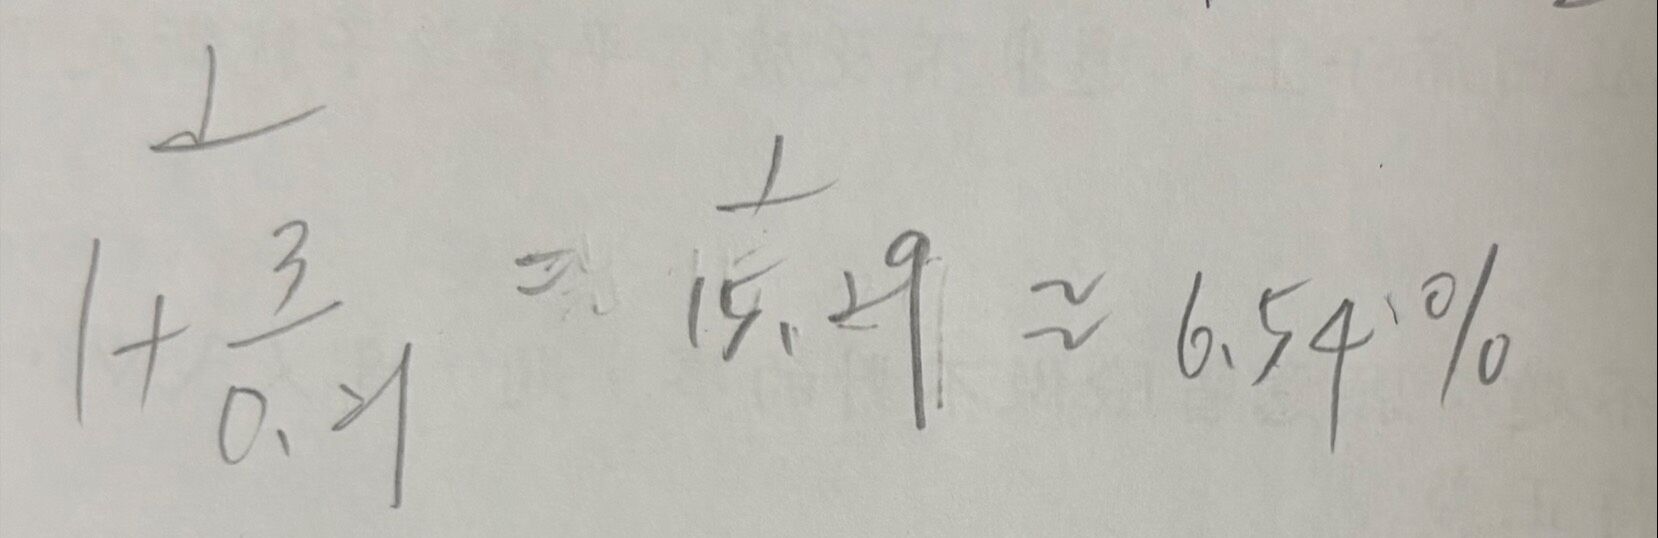 1/(1+3/0.21) = 1/15.29 ≈ 6.54%